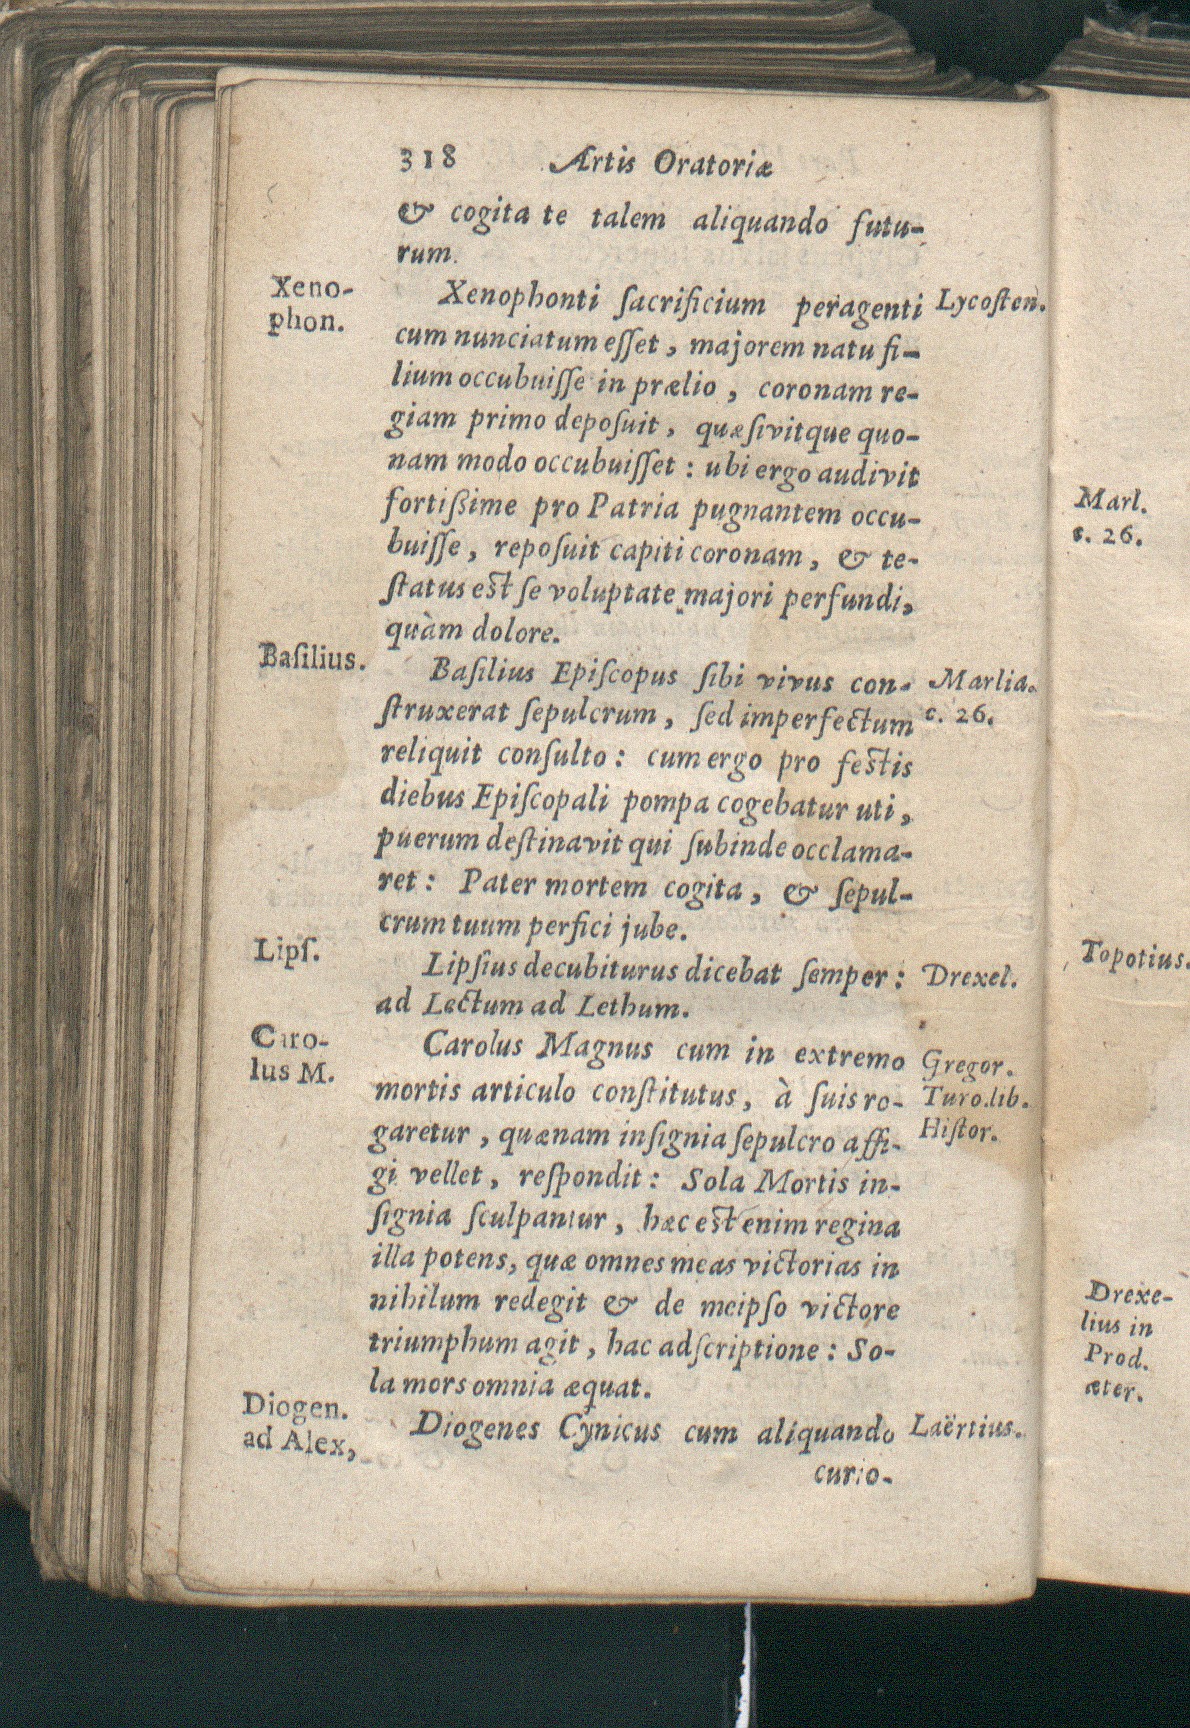 318 Artis Oratoriæ
& cogita te talem aliquando futu-
rum.
Xeno-
phon.
Xenophonti ſacrificium peragenti
Lycoſten.
cum nunciatum eſſet, majorem natu fi-
lium occubuiſſe in prælio, coronam re-
giam primo depoſuit, quæſivitque quo-
nam modo occubuiſſet: ubi ergo audivit
fortißime pro Patria pugnantem occu-
buiſſe, repoſuit capiti coronam, & te-
ſtatus eſt ſe voluptate majori perfundi,
quàm dolore.
Baſilius.
Baſilius Epiſcopus ſibi vivus con-
Marlia.
ſtruxerat ſepulcrum, ſed imperfectum
c. 26.
reliquit conſulto: cum ergo pro feſtis
diebus Epiſcopali pompa cogebatur uti,
puerum deſtinavit qui ſubinde occlama-
ret: Pater mortem cogita, & ſepul-
crum tuum perfici jube.
Lipſ.
Lipſius decubiturus dicebat ſemper:
Drexel.
ad Lectum ad Lethum.
Caro-
lus M.
Carolus Magnus cum in extremo
Gregor.
mortis articulo conſtitutus, à ſuis ro-
Turo.lib.
garetur, quænam inſignia ſepulcro affi-
Hiſtor.
gi vellet, reſpondit: Sola Mortis in-
ſignia ſculpantur, hæc eſt enim regina
illa potens, quæ omnes meas victorias in
nihilum redegit & de meipſo victore
triumphum agit, hac adſcriptione: So-
la mors omnia æquat.
Diogen.
ad Alex,
Diogenes Cynicus cum aliquando
Laërtius.
curio-
Marl.
c. 26.
Topotius.
Drexe-
lius in
Prod.
æter.